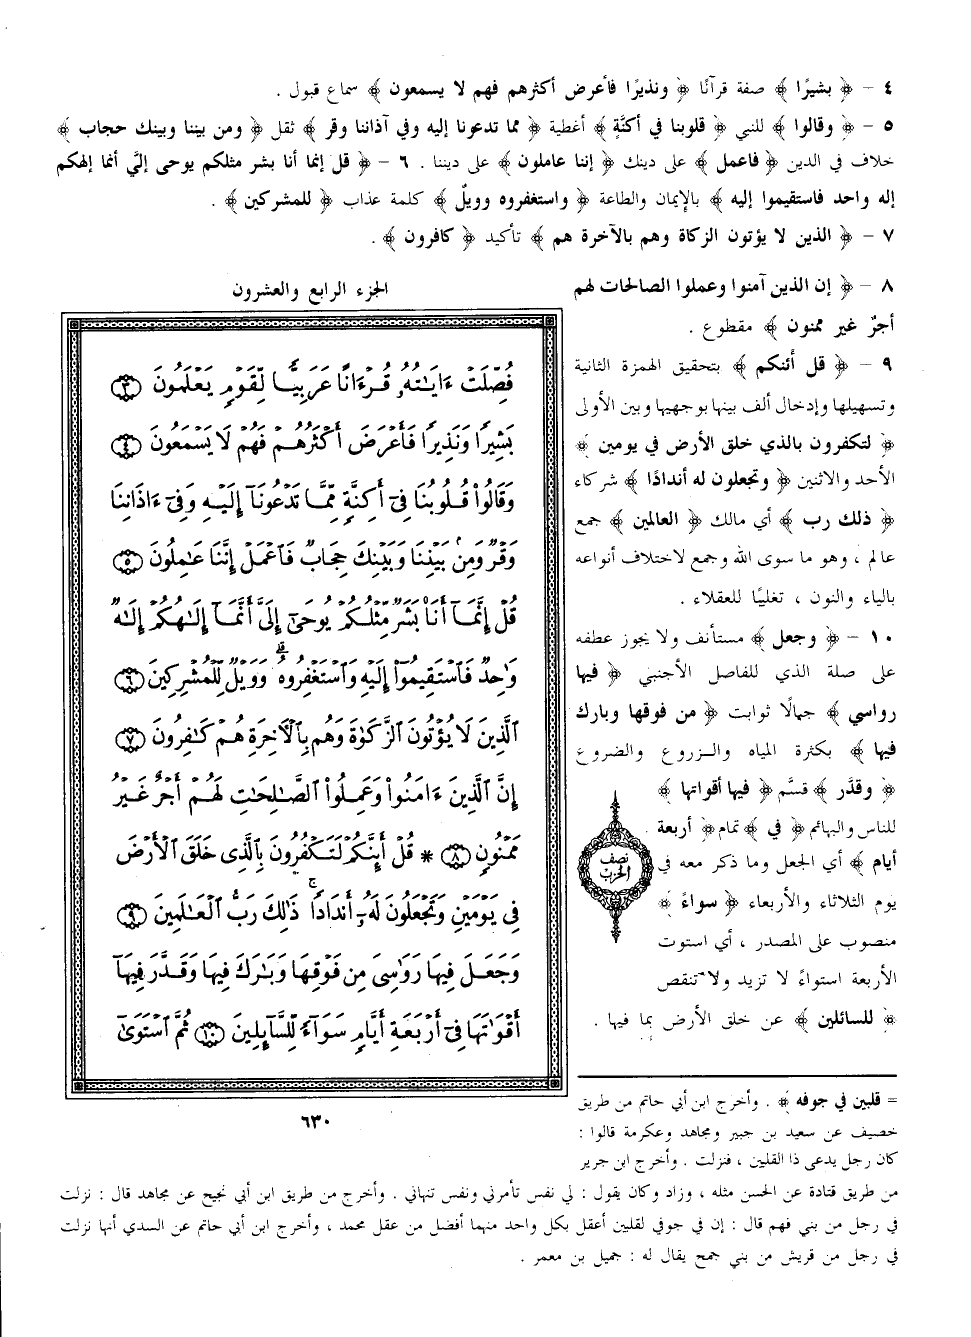 ٤ - ﴿ بشيرًا ﴾ صفة قرآنًا ﴿ ونذيرًا فأعرض أكثرهم فهم لا يسمعون ﴾ سماع قبول .
٥ - ﴿ وقالوا ﴾ للنبي ﴿ قلوبنا في أكنَّةٍ ﴾ أغطية ﴿ مما تدعونا إليه وفي آذاننا وقر ﴾ ثقل ﴿ ومن بيننا وبينك حجاب ﴾
خلاف في الدين ﴿ فاعمل ﴾ على دينك ﴿ إننا عاملون ﴾ على ديننا . ٦ - ﴿ قل إنما أنا بشر مثلكم يوحى إليَّ أنما إلهكم
إله واحد فاستقيموا إليه ﴾ بالإيمان والطاعة ﴿ واستغفروه وويلٌ ﴾ كلمة عذاب ﴿ للمشركين ﴾ .
٧ - ﴿ الذين لا يؤتون الزكاة وهم بالآخرة هم ﴾ تأكيد ﴿ كافرون ﴾ .
٨ - ﴿ إن الذين آمنوا وعملوا الصالحات لهم
أجرٌ غير ممنون ﴾ مقطوع .
٩ - ﴿ قل أئنكم ﴾ بتحقيق الهمزة الثانية
وتسهيلها وإدخال ألف بينها بوجهيها وبين الأولى
﴿ لتكفرون بالذي خلق الأرض في يومين ﴾
الأحد والاثنين ﴿ وتجعلون له أندادًا ﴾ شركاء
﴿ ذلك رب ﴾ أي مالك ﴿ العالمين ﴾ جمع
عالم ، وهو ما سوى الله وجمع لاختلاف أنواعه
بالياء والنون ، تغليبًا للعقلاء .
١٠ - ﴿ وجعل ﴾ مستأنف ولا يجوز عطفه
على صلة الذي للفاصل الأجنبي ﴿ فيها
رواسي ﴾ جبالًا ثوابت ﴿ من فوقها وبارك
فيها ﴾ بكثرة المياه والزروع والضروع
﴿ وقدَّر ﴾ قسَّم ﴿ فيها أقواتها ﴾
للناس والبهائم ﴿ في ﴾ تمام ﴿ أربعة
أيام ﴾ أي الجعل وما ذكر معه في
يوم الثلاثاء والأربعاء ﴿ سواءً ﴾
منصوب على المصدر ، أي استوت
الأربعة استواءً لا تزيد ولا تنقص
﴿ للسائلين ﴾ عن خلق الأرض بما فيها .
نصف
الحزب
الجزء الرابع والعشرون
فُصِّلَتْ ءَايَٰتُهُۥ قُرْءَانًا عَرَبِيًّا لِّقَوْمٍ يَعْلَمُونَ ٣
بَشِيرًا وَنَذِيرًا فَأَعْرَضَ أَكْثَرُهُمْ فَهُمْ لَا يَسْمَعُونَ ٤
وَقَالُوا۟ قُلُوبُنَا فِىٓ أَكِنَّةٍ مِّمَّا تَدْعُونَآ إِلَيْهِ وَفِىٓ ءَاذَانِنَا
وَقْرٌ وَمِنۢ بَيْنِنَا وَبَيْنِكَ حِجَابٌ فَٱعْمَلْ إِنَّنَا عَٰمِلُونَ ٥
قُلْ إِنَّمَآ أَنَا۠ بَشَرٌ مِّثْلُكُمْ يُوحَىٰٓ إِلَىَّ أَنَّمَآ إِلَٰهُكُمْ إِلَٰهٌ
وَٰحِدٌ فَٱسْتَقِيمُوٓا۟ إِلَيْهِ وَٱسْتَغْفِرُوهُ ۗ وَوَيْلٌ لِّلْمُشْرِكِينَ ٦
ٱلَّذِينَ لَا يُؤْتُونَ ٱلزَّكَوٰةَ وَهُم بِٱلْءَاخِرَةِ هُمْ كَٰفِرُونَ ٧
إِنَّ ٱلَّذِينَ ءَامَنُوا۟ وَعَمِلُوا۟ ٱلصَّٰلِحَٰتِ لَهُمْ أَجْرٌ غَيْرُ
مَمْنُونٍ ٨ * قُلْ أَئِنَّكُمْ لَتَكْفُرُونَ بِٱلَّذِى خَلَقَ ٱلْأَرْضَ
فِى يَوْمَيْنِ وَتَجْعَلُونَ لَهُۥٓ أَندَادًا ۚ ذَٰلِكَ رَبُّ ٱلْعَٰلَمِينَ ٩
وَجَعَلَ فِيهَا رَوَٰسِىَ مِن فَوْقِهَا وَبَٰرَكَ فِيهَا وَقَدَّرَ فِيهَآ
أَقْوَٰتَهَا فِىٓ أَرْبَعَةِ أَيَّامٍ سَوَآءً لِّلسَّآئِلِينَ ١٠ ثُمَّ ٱسْتَوَىٰٓ
٦٣٠
= قلبين في جوفه ﴾ . وأخرج ابن أبي حاتم من طريق
خصيف عن سعيد بن جبير ومجاهد وعكرمة قالوا :
كان رجل يدعى ذا القلبين ، فنزلت . وأخرج ابن جرير
من طريق قتادة عن الحسن مثله ، وزاد وكان يقول : لي نفس تأمرني ونفس تنهاني . وأخرج من طريق ابن أبي نجيح عن مجاهد قال : نزلت
في رجل من بني فهم قال : إن في جوفي لقلبين أعقل بكل واحد منهما أفضل من عقل محمد ، وأخرج ابن أبي حاتم عن السدي أنها نزلت
في رجل من قريش من بني جمح يقال له : جميل بن معمر .